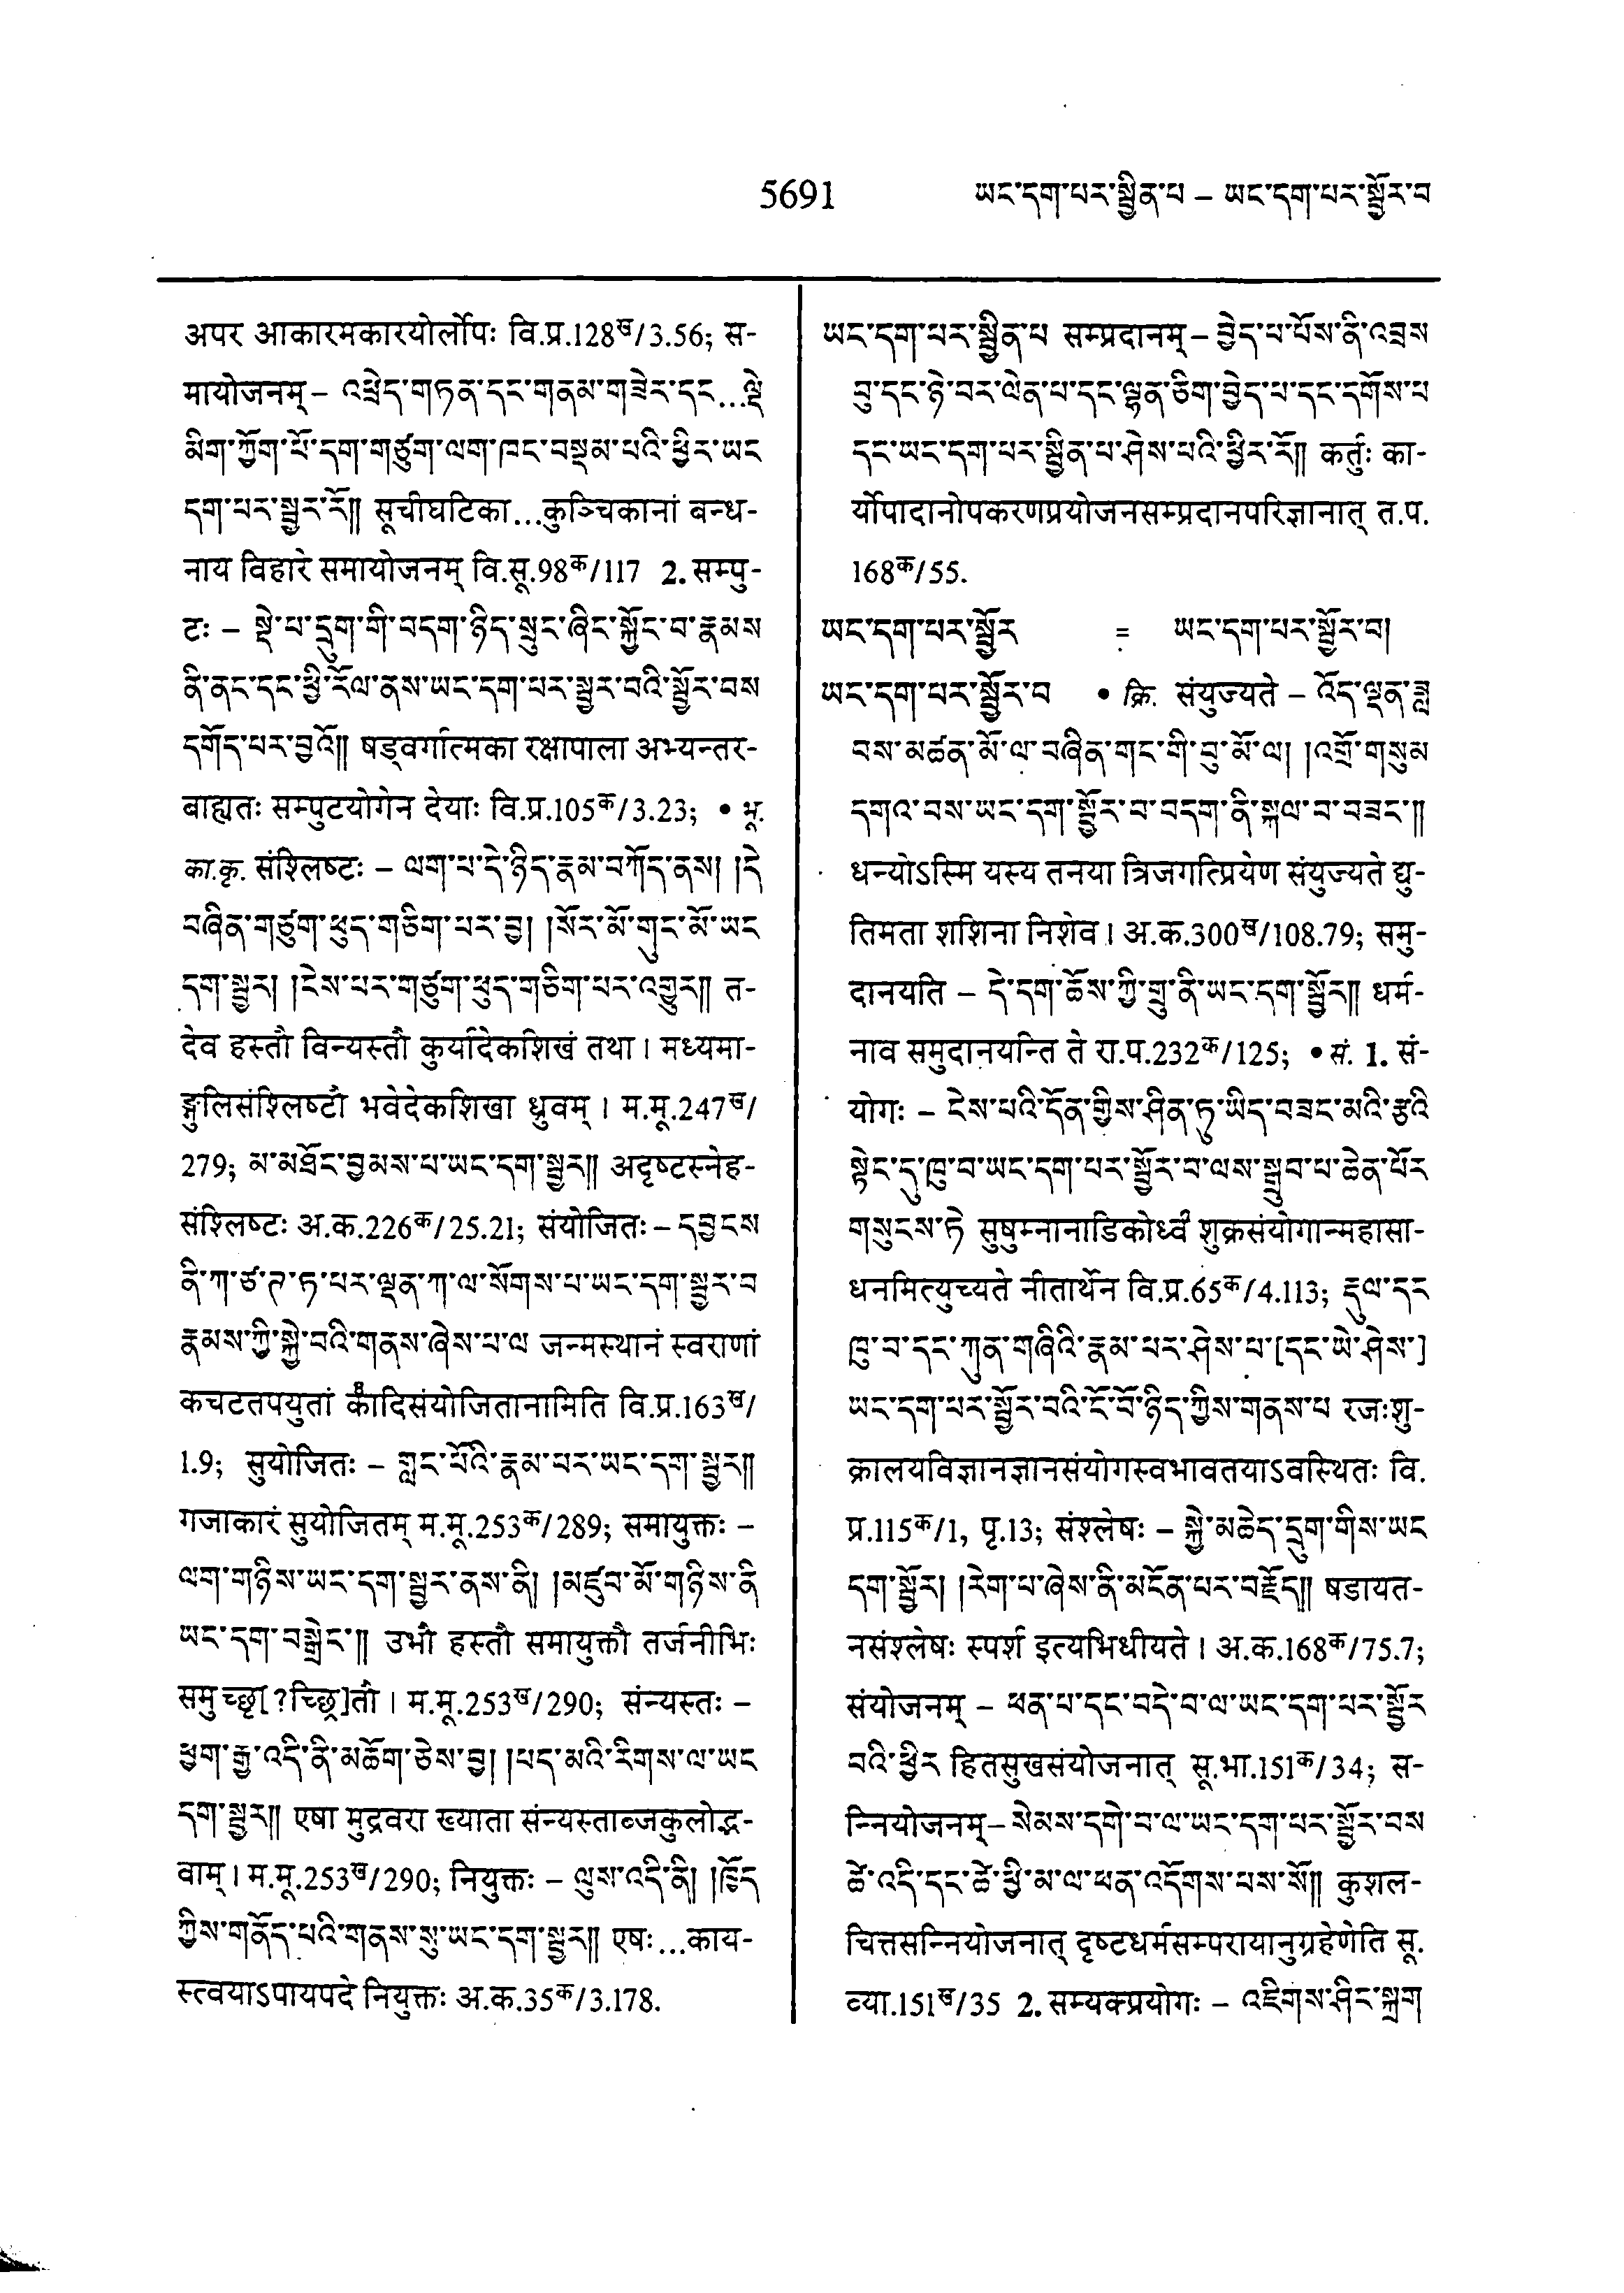 5691 ཡང་དག་པར་སྦྱིན་པ – ཡང་དག་པར་སྦྱོར་བ
अपर आकारमकारयोर्लोपः वि.प्र.128ख/3.56; स-
मायोजनम् – འཕྲེད་གཏན་དང་གནམ་གཟེར་དང...ལྡེ
མིག་ཀྱོག་པོ་དག་གཙུག་ལག་ཁང་བསྡམ་པའི་ཕྱིར་ཡང
དག་པར་སྦྱར་རོ།། सूचीघटिका...कुञ्चिकानां बन्ध-
नाय विहारे समायोजनम् वि.सू.98क/117 2. सम्पु-
टः – སྡེ་པ་དྲུག་གི་བདག་ཉིད་སྲུང་ཞིང་སྐྱོང་བ་རྣམས
ནི་ནང་དང་ཕྱི་རོལ་ནས་ཡང་དག་པར་སྦྱར་བའི་སྦྱོར་བས
དགོད་པར་བྱའོ།། षड्वर्गात्मका रक्षापाला अभ्यन्तर-
बाह्यतः सम्पुटयोगेन देयाः वि.प्र.105क/3.23; • भू.
का.कृ. संश्लिष्टः – ལག་པ་དེ་ཉིད་རྣམ་བཀོད་ནས། །དེ
བཞིན་གཙུག་ཕུད་གཅིག་པར་བྱ། །སོར་མོ་གུང་མོ་ཡང
དག་སྦྱར། །ངེས་པར་གཙུག་ཕུད་གཅིག་པར་འགྱུར།། त-
देव हस्तौ विन्यस्तौ कुर्यादेकशिखं तथा । मध्यमा-
ङ्गुलिसंश्लिष्टौ भवेदेकशिखा ध्रुवम् । म.मू.247ख/
279; མ་མཐོང་བྱམས་པ་ཡང་དག་སྦྱར།། अदृष्टस्नेह-
संश्लिष्टः अ.क.226क/25.21; संयोजितः – དབྱངས
ནི་ཀ་ཙ་ཊ་ཏ་པར་ལྡན་ཀ་ལ་སོགས་པ་ཡང་དག་སྦྱར་བ
རྣམས་ཀྱི་སྐྱེ་བའི་གནས་ཞེས་པ་ལ जन्मस्थानं स्वराणां
कचटतपयुतां कादिसंयोजितानामिति वि.प्र.163ख/
1.9; सुयोजितः – གླང་པོའི་རྣམ་པར་ཡང་དག་སྦྱར།།
गजाकारं सुयोजितम् म.मू.253क/289; समायुक्तः –
ལག་གཉིས་ཡང་དག་སྦྱར་ནས་ནི། །མཛུབ་མོ་གཉིས་ནི
ཡང་དག་བསྒྲེང་།། उभौ हस्तौ समायुक्तौ तर्जनीभिः
समुच्छृ[?च्छ्रि]तौ । म.मू.253ख/290; संन्यस्तः –
ཕྱག་རྒྱ་འདི་ནི་མཆོག་ཅེས་བྱ། །པད་མའི་རིགས་ལ་ཡང
དག་སྦྱར།། एषा मुद्रवरा ख्याता संन्यस्ताब्जकुलोद्भ-
वाम् । म.मू.253ख/290; नियुक्तः – ལུས་འདི་ནི། །ཁྱོད
ཀྱིས་གནོད་པའི་གནས་སུ་ཡང་དག་སྦྱར།། एषः...काय-
स्त्वयाऽपायपदे नियुक्तः अ.क.35क/3.178.
ཡང་དག་པར་སྦྱིན་པ सम्प्रदानम् – བྱེད་པ་པོས་ནི་འབྲས
བུ་དང་ཉེ་བར་ལེན་པ་དང་ལྷན་ཅིག་བྱེད་པ་དང་དགོས་པ
དང་ཡང་དག་པར་སྦྱིན་པ་ཤེས་པའི་ཕྱིར་རོ།། कर्तुः का-
र्योपादानोपकरणप्रयोजनसम्प्रदानपरिज्ञानात् त.प.
168क/55.
ཡང་དག་པར་སྦྱོར = ཡང་དག་པར་སྦྱོར་བ།
ཡང་དག་པར་སྦྱོར་བ • क्रि. संयुज्यते – འོད་ལྡན་ཟླ
བས་མཚན་མོ་ལ་བཞིན་གང་གི་བུ་མོ་ལ། །འགྲོ་གསུམ
དགའ་བས་ཡང་དག་སྦྱོར་བ་བདག་ནི་སྐལ་བ་བཟང་།།
धन्योऽस्मि यस्य तनया त्रिजगत्प्रियेण संयुज्यते द्यु-
तिमता शशिना निशेव । अ.क.300ख/108.79; समु-
दानयति – དེ་དག་ཆོས་ཀྱི་གྲུ་ནི་ཡང་དག་སྦྱོར།། धर्म-
नाव समुदानयन्ति ते रा.प.232क/125; • सं. 1. सं-
योगः – ངེས་པའི་དོན་གྱིས་ཤིན་ཏུ་ཡིད་བཟང་མའི་རྩའི
སྟེང་དུ་ཁུ་བ་ཡང་དག་པར་སྦྱོར་བ་ལས་སྒྲུབ་པ་ཆེན་པོར
གསུངས་ཏེ सुषुम्नानाडिकोर्ध्वं शुक्रसंयोगान्महासा-
धनमित्युच्यते नीतार्थेन वि.प्र.65क/4.113; རྡུལ་དང
ཁུ་བ་དང་ཀུན་གཞིའི་རྣམ་པར་ཤེས་པ་[དང་ཡེ་ཤེས་]
ཡང་དག་པར་སྦྱོར་བའི་ངོ་བོ་ཉིད་ཀྱིས་གནས་པ रजःशु-
क्रालयविज्ञानज्ञानसंयोगस्वभावतयाऽवस्थितः वि.
प्र.115क/1, पृ.13; संश्लेषः – སྐྱེ་མཆེད་དྲུག་གིས་ཡང
དག་སྦྱོར། །རེག་པ་ཞེས་ནི་མངོན་པར་བརྗོད།། षडायत-
नसंश्लेषः स्पर्श इत्यभिधीयते । अ.क.168क/75.7;
संयोजनम् – ཕན་པ་དང་བདེ་བ་ལ་ཡང་དག་པར་སྦྱོར
བའི་ཕྱིར हितसुखसंयोजनात् सू.भा.151क/34; स-
न्नियोजनम् – སེམས་དགེ་བ་ལ་ཡང་དག་པར་སྦྱོར་བས
ཚེ་འདི་དང་ཚེ་ཕྱི་མ་ལ་ཕན་འདོགས་པས་སོ།། कुशल-
चित्तसन्नियोजनात् दृष्टधर्मसम्परायानुग्रहेणेति सू.
व्या.151ख/35 2. सम्यक्प्रयोगः – འཇིགས་ཤིང་སྐྲག